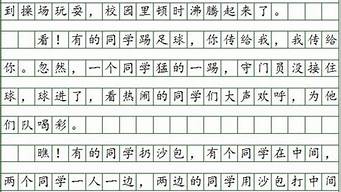 到操场玩耍，校园里顿时沸腾起来了。
看！有的同学踢足球，你传给我，我传给
你。忽然，一个同学猛的一踢，守门员没接住
球，球进了，看热闹的同学们大声欢呼，为他
们队喝彩。
瞧！有的同学扔沙包，有个同学在中间，
两个同学一人一边，两边的同学用沙包打中间